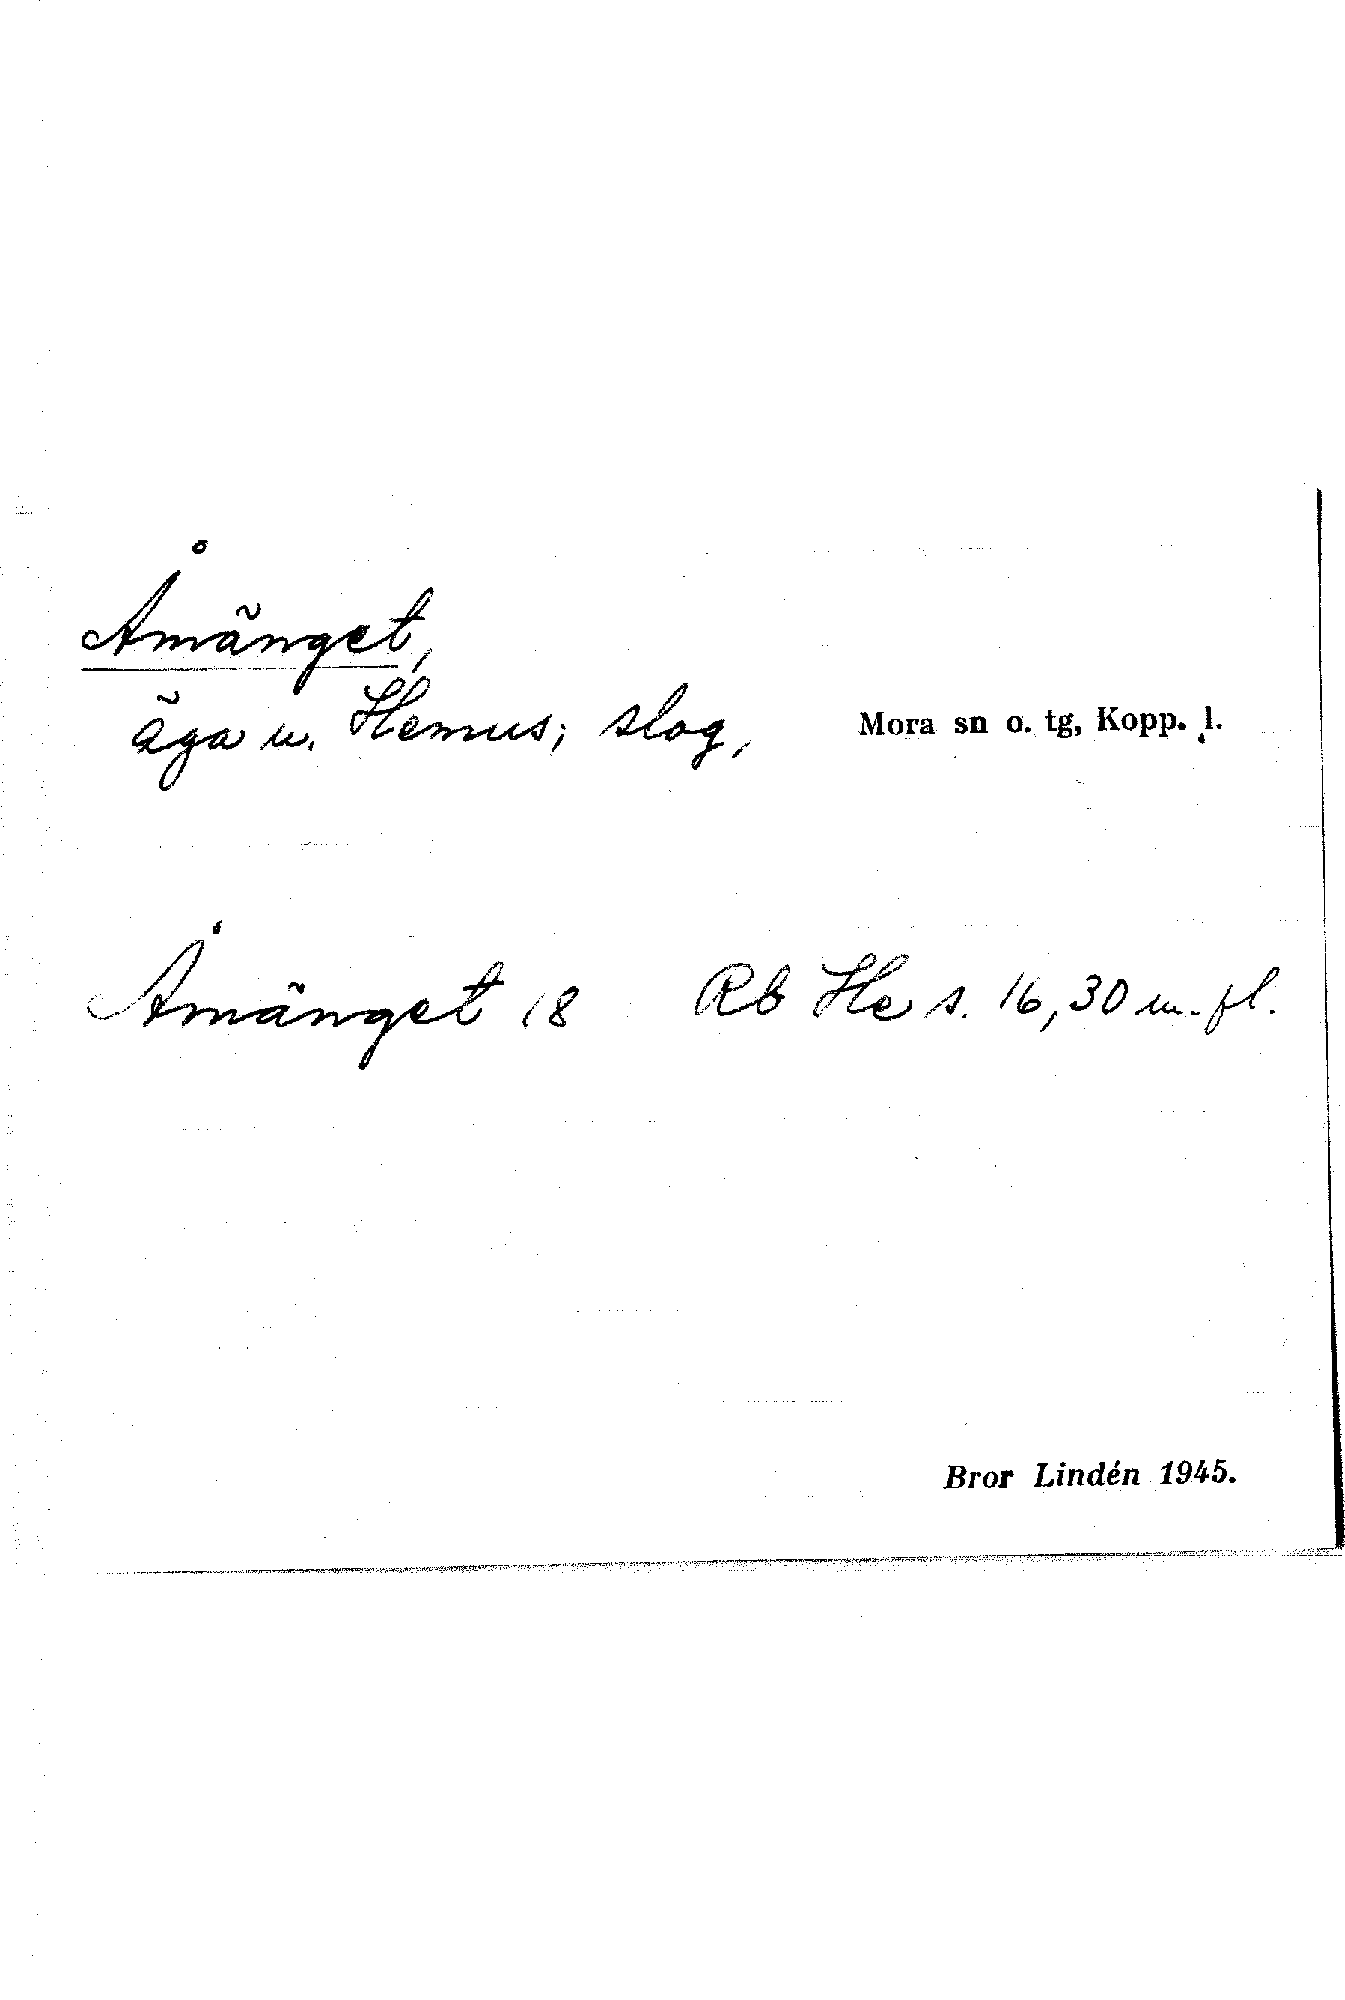 Åmänget,
äga u. Hemus; slog, Mora sn o. tg, Kopp. l.
Åmänget 18 Rb He s. 16,30 m.fl.
Bror Lindén 1945.